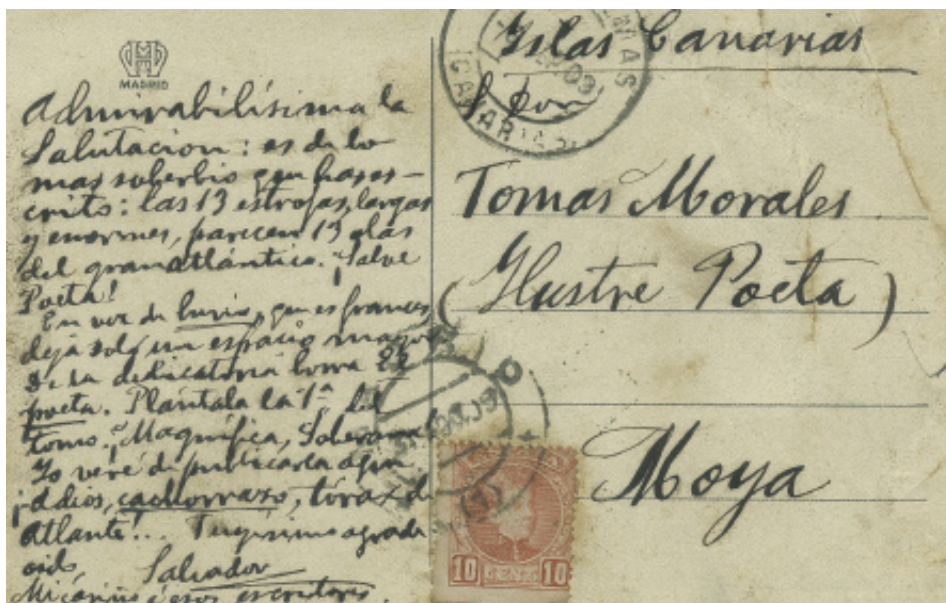 MADRID
Admirabilísima la
Salutacion: es de lo
mas soberbio que hayas es-
crito: las 13 estrofas, largas
y enormes, parecen 13 olas
del gran atlántico. ¡Salve
Poeta!
En vez de, que es frances
deja solo un espacio mayor
De la dedicatoria borra El
poeta. Plantala la 1ª del
tomo. ¡Magnífica, Soberana!
Yo veré de publicarla aqui
¡adios, cachorrazo, torax de
Atlante!... Tuyisimo agrade
cido
Salvador
Mi cariño á esos escritores.
Yslas Canarias
Tomas Morales
(Ylustre Poeta)
Moya
CANARIAS
10 CENT. 10